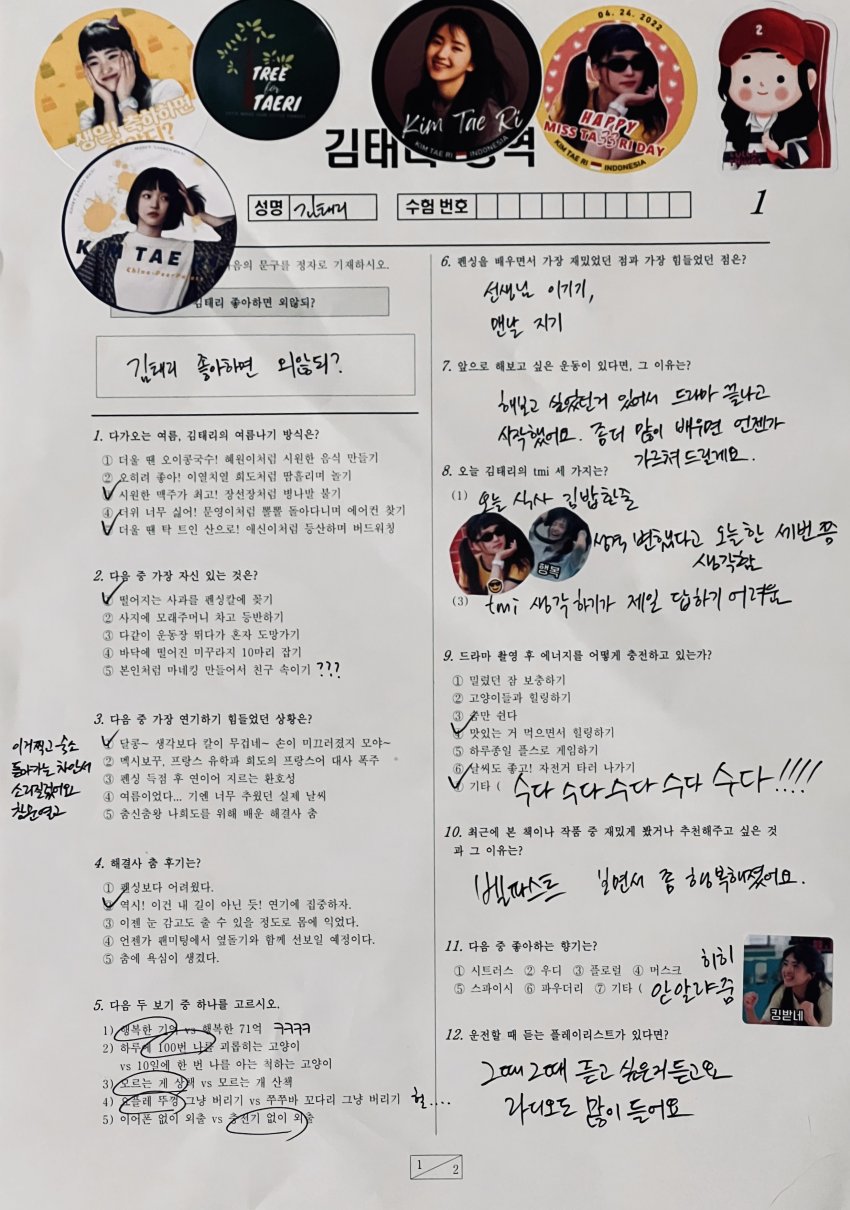 생일! 축하하면
TREE
for
TAERI
Kim Tae Ri
KIM TAE RI INDONESIA
04. 24. 2022
HAPPY
33
MISS TAERI DAY
KIM TAE RI INDONESIA
2
KIM TAE RI
김태리
성명 김태리
수험 번호
1
문구를 정자로 기재하시오.
김태리 좋아하면 외않되?
김태리 좋아하면 외않되?
1. 다가오는 여름, 김태리의 여름나기 방식은?
① 더울 땐 오이콩국수! 혜원이처럼 시원한 음식 만들기
② 오히려 좋아! 이열치열 희도처럼 땀흘리며 놀기
③ 시원한 맥주가 최고! 장선장처럼 병나발 불기
④ 더위 너무 싫어! 문영이처럼 뽈뽈 돌아다니며 에어컨 찾기
⑤ 더울 땐 탁 트인 산으로! 애신이처럼 등산하며 버드워칭
2. 다음 중 가장 자신 있는 것은?
① 떨어지는 사과를 펜싱칼에 꽂기
② 사지에 모래주머니 차고 등반하기
③ 다같이 운동장 뛰다가 혼자 도망가기
④ 바닥에 떨어진 미꾸라지 10마리 잡기
⑤ 본인처럼 마네킹 만들어서 친구 속이기 ???
3. 다음 중 가장 연기하기 힘들었던 상황은?
① 달콩~ 생각보다 칼이 무겁네~ 손이 미끄러졌지 모야~
② 멕시보꾸, 프랑스 유학과 희도의 프랑스어 대사 폭주
③ 펜싱 득점 후 연이어 지르는 환호성
④ 여름이었다... 기엔 너무 추웠던 실제 날씨
⑤ 춤신춤왕 나희도를 위해 배운 해결사 춤
이거찍고 숙소
돌아가는 차안에서
소리질렀어요
창문열고
4. 해결사 춤 후기는?
① 펜싱보다 어려웠다.
② 역시! 이건 내 길이 아닌 듯! 연기에 집중하자.
③ 이젠 눈 감고도 출 수 있을 정도로 몸에 익었다.
④ 언젠가 팬미팅에서 옆돌기와 함께 선보일 예정이다.
⑤ 춤에 욕심이 생겼다.
5. 다음 두 보기 중 하나를 고르시오.
1) 행복한 기억 vs 행복한 71억 ㅋㅋㅋㅋ
2) 하루에 100번 나를 괴롭히는 고양이
vs 10일에 한 번 나를 아는 척하는 고양이
3) 모르는 게 상책 vs 모르는 개 산책
4) 요플레 뚜껑 그냥 버리기 vs 쭈쭈바 꼬다리 그냥 버리기 헐....
5) 이어폰 없이 외출 vs 충전기 없이 외출
6. 펜싱을 배우면서 가장 재밌었던 점과 가장 힘들었던 점은?
선생님 이기기,
맨날 지기
7. 앞으로 해보고 싶은 운동이 있다면, 그 이유는?
해보고 싶었던거 있어서 드라마 끝나고
시작했어요. 좀더 많이 배우면 언젠가
가르쳐 드릴게요.
8. 오늘 김태리의 tmi 세 가지는?
(1) 오늘 식사 김밥한줄
행복
성격 변했다고 오늘한 세번쯤
생각함
(3) tmi 생각하기가 제일 답하기 어려운
9. 드라마 촬영 후 에너지를 어떻게 충전하고 있는가?
① 밀렸던 잠 보충하기
② 고양이들과 힐링하기
③ 숨만 쉰다
④ 맛있는 거 먹으면서 힐링하기
⑤ 하루종일 플스로 게임하기
⑥ 날씨도 좋고! 자전거 타러 나가기
⑦ 기타 ( 수다 수다 수다 수다 수다!!!!
10. 최근에 본 책이나 작품 중 재밌게 봤거나 추천해주고 싶은 것
과 그 이유는?
벨파스트 보면서 좀 행복해졌어요.
11. 다음 중 좋아하는 향기는?
① 시트러스 ② 우디 ③ 플로럴 ④ 머스크
⑤ 스파이시 ⑥ 파우더리 ⑦ 기타 ( 안알랴줌
히히
킹받네
12. 운전할 때 듣는 플레이리스트가 있다면?
그때그때 듣고 싶은거 듣고요
라디오도 많이 들어요
1 2